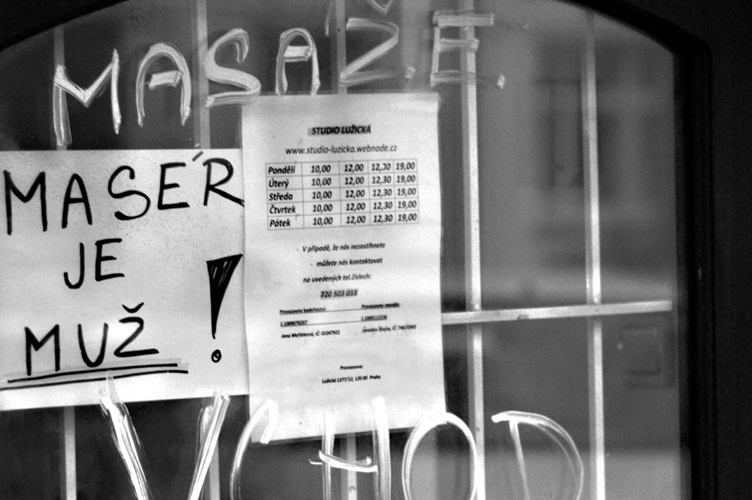 MASAŽE
MASÉR
JE
MUŽ !
STUDIO LUŽICKÁ
www.studio-luzicka.webnode.cz
Pondělí 10,00 12,00 12,30 19,00
Úterý 10,00 12,00 12,30 19,00
Středa 10,00 12,00 12,30 19,00
Čtvrtek 10,00 12,00 12,30 19,00
Pátek 10,00 12,00 12,30 19,00
- V případě, že nás nezastihnete
- můžete nás kontaktovat
na uvedených tel.číslech:
720 503 033
Provozovna
VCHOD